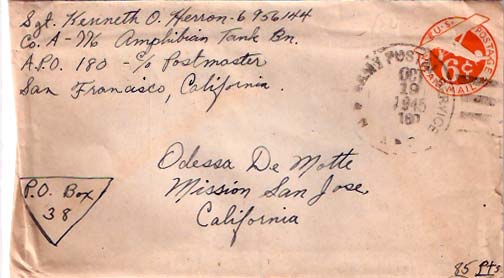 Sgt. Kenneth O. Herron - 6956144
Co. A - 776 Amphibian Tank Bn.
A.P.O. 180 - c/o Postmaster
San Francisco, California.
U.S. POSTAGE
6¢
AIR MAIL
ARMY POSTAL SERVICE
OCT
19
1945
A.P.O.
Odessa De Motte
Mission San Jose
California
P.O. Box
38
85 pts